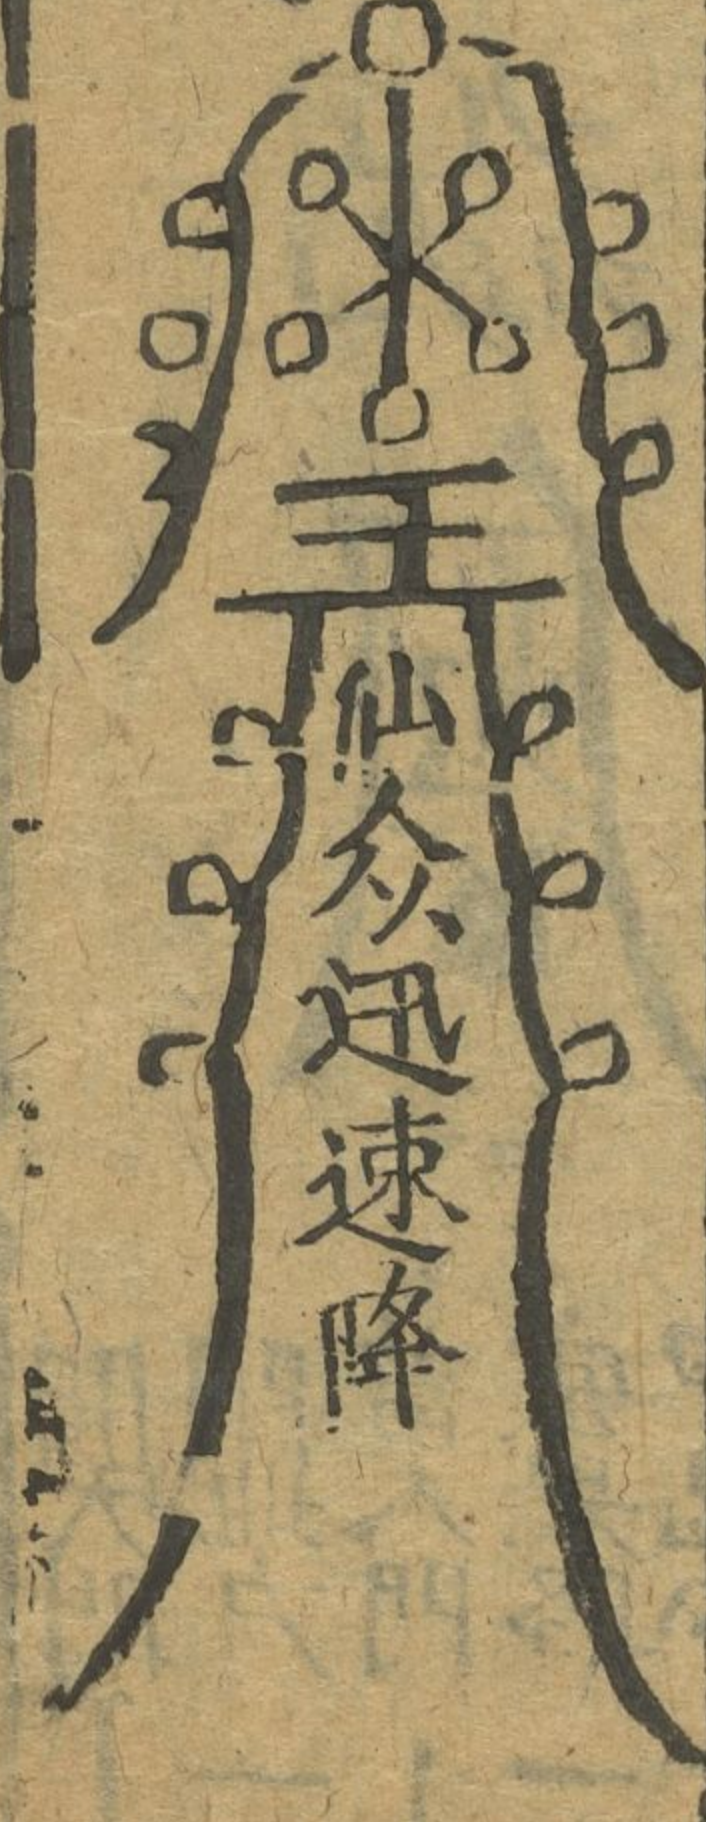 王
仙众迅速降